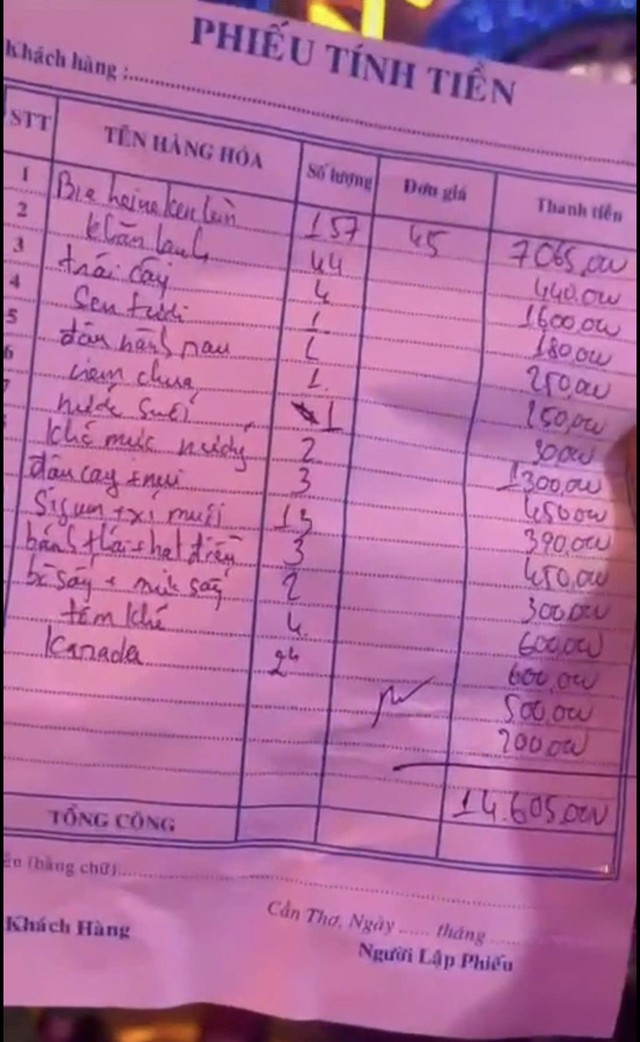 PHIẾU TÍNH TIỀN
Khách hàng :
STT TÊN HÀNG HÓA Số lượng Đơn giá Thanh tiền
1 Bia heineken lùn 157 45 7065,00
2 khăn lạnh 44 440,00
3 trái cây 4 1600,00
4 Sen tươi 1 180,00
5 đậu nành rau 1 250,00
6 nem chua 1 150,00
7 nước suối 1 30,00
khô mực nướng 2 1300,00
đậu cay + nui 3 450,00
Sigum + xí muội 13 390,00
bánh + hạt điều 3 450,00
bò sấy + mít sấy 2 300,00
tôm khô 4 600,00
Kanada 24 600,00
500,00
200,00
14.605,00
TỔNG CỘNG
(bằng chữ)
Cần Thơ, Ngày ..... tháng
Khách Hàng Người Lập Phiếu